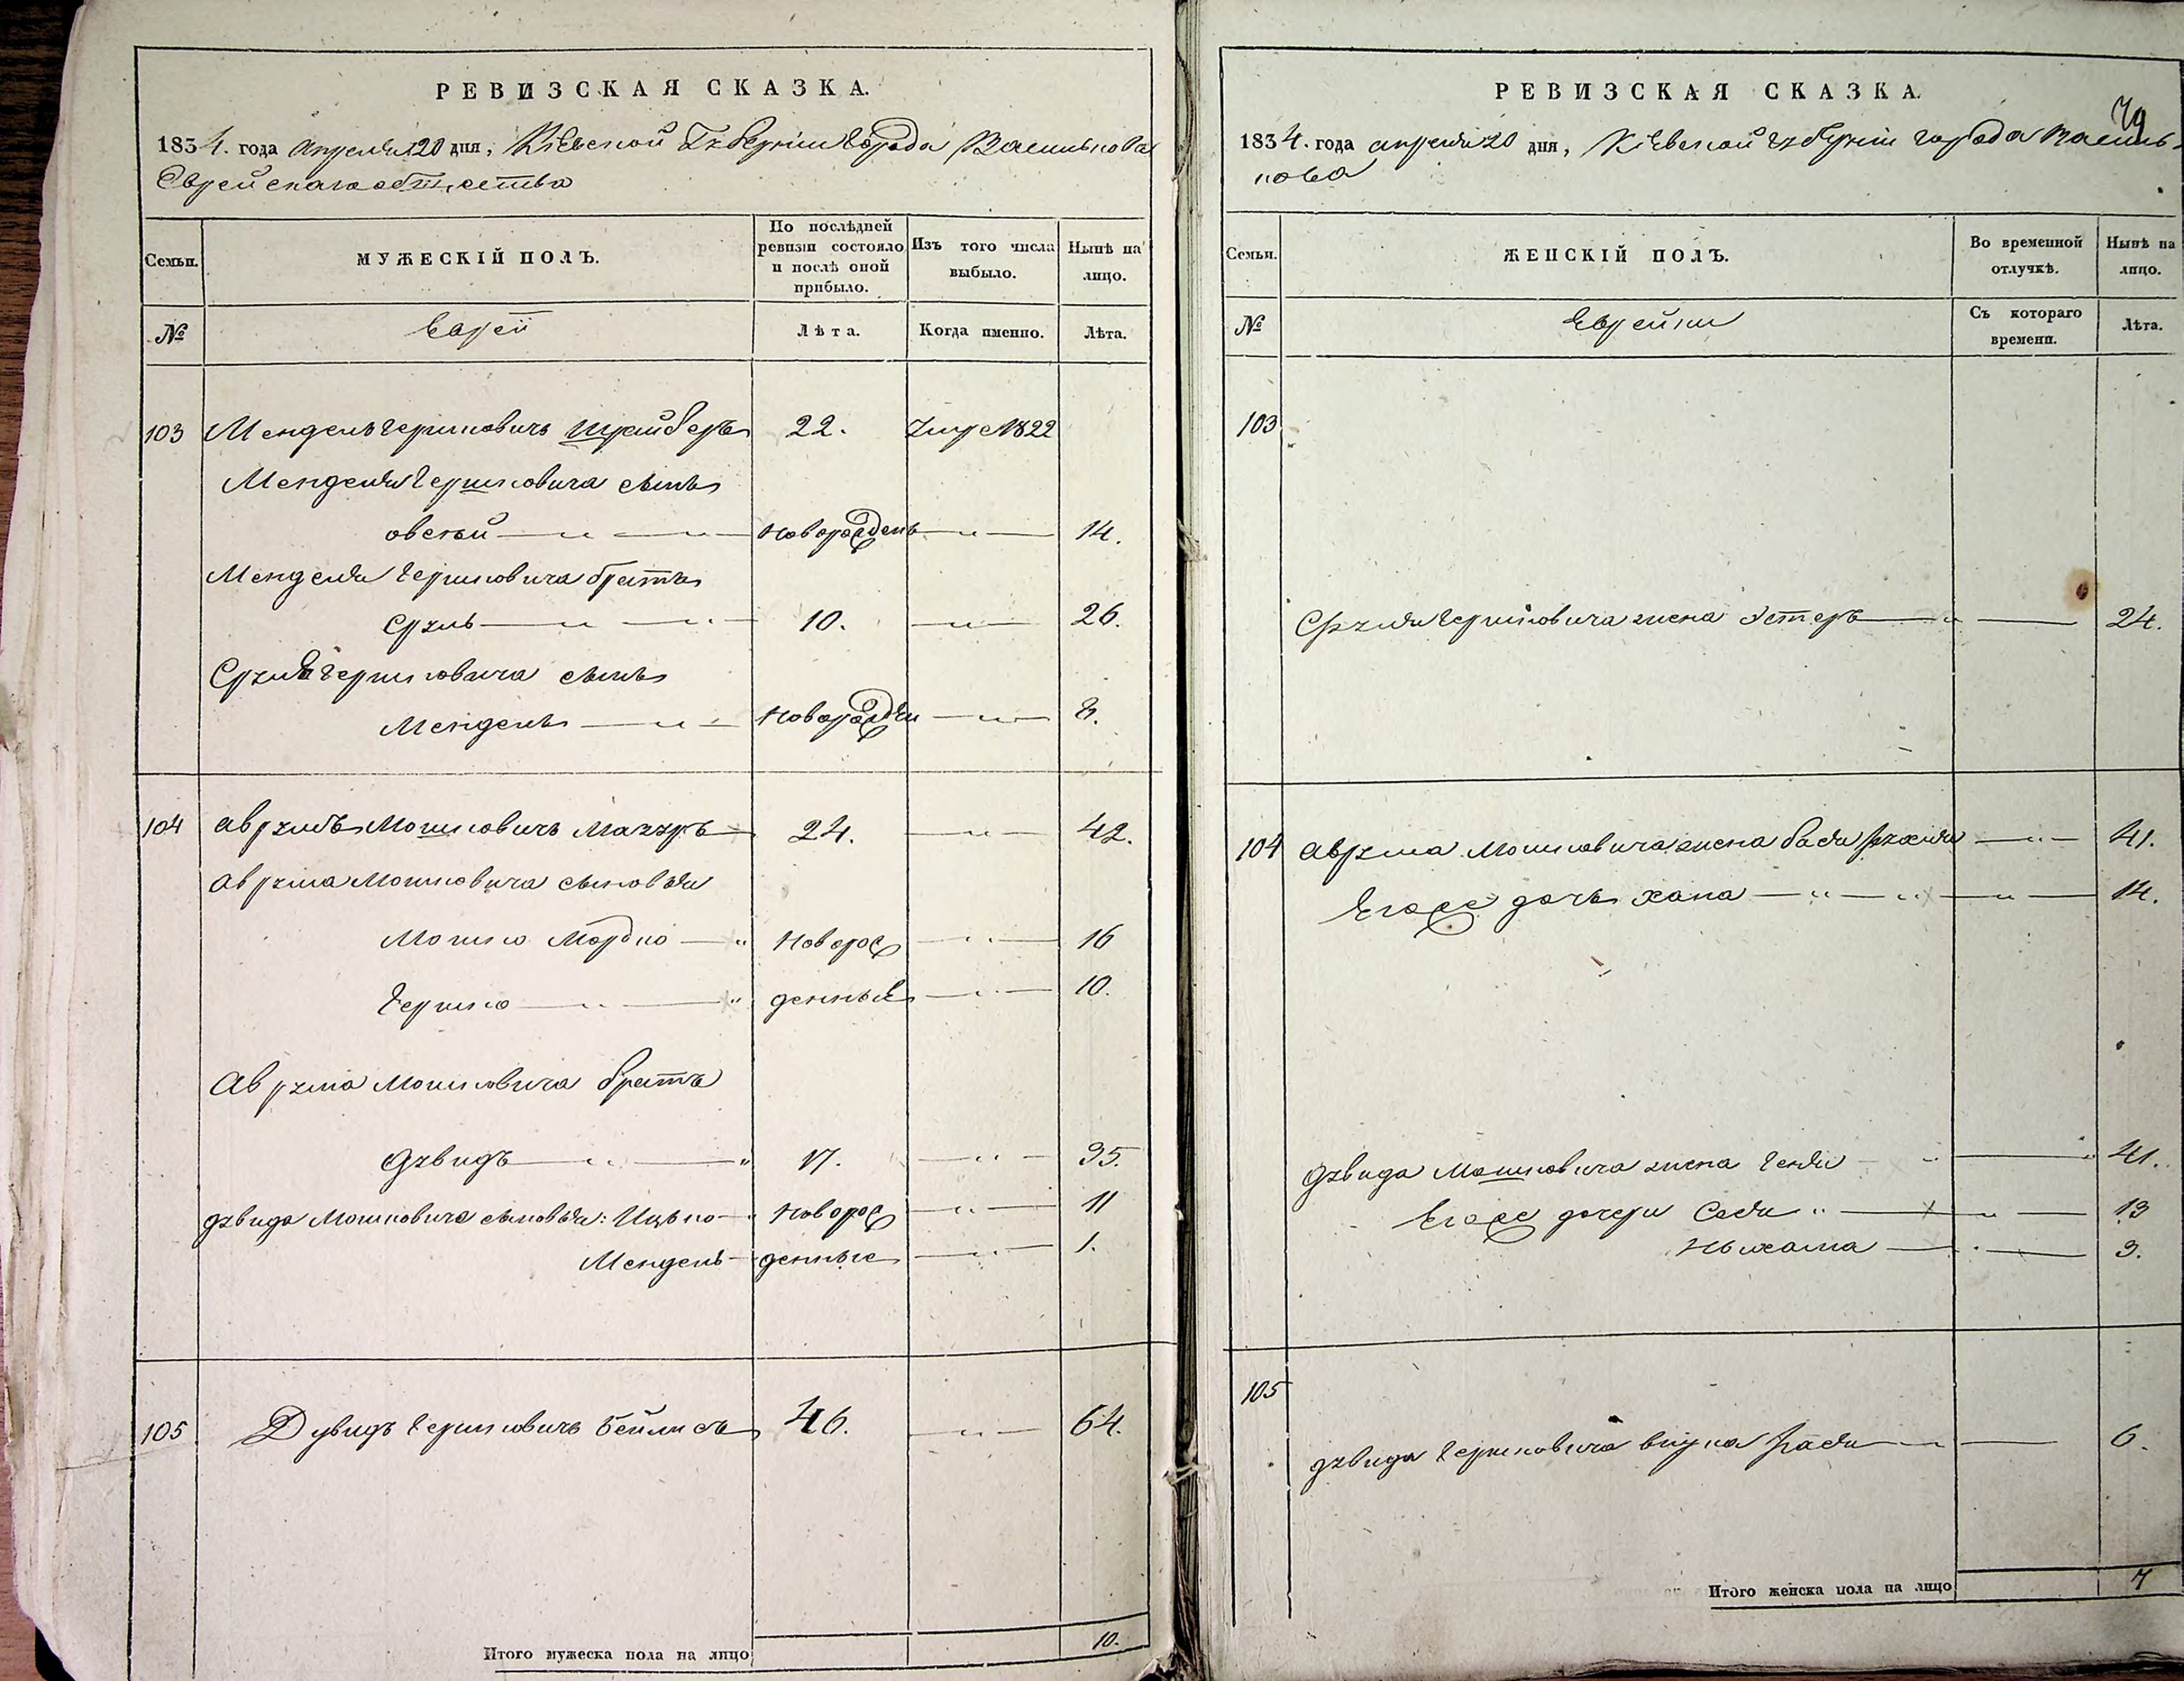 РЕВИЗСКАЯ СКАЗКА.
1834. года апреля 20 дня, Кіевской Губерніи Города Василькова
Еврейскаго общества
Семьи.
МУЖЕСКІЙ ПОЛЪ.
По послѣдней ревизіи состояло и послѣ оной прибыло.
Изъ того числа выбыло.
Нынѣ на лицо.
№
Евреи
Лѣта.
Когда именно.
Лѣта.
103 Мендель Гершковичъ Шрайберъ 22. Умре 1822
Менделя Гершковича сынъ
Овсей новорожденъ 14.
Менделя Гершковича братъ
Сруль 10. 26.
Сруля Гершковича сынъ
Мендель 8.
104 Аврумъ Мошковичъ Мазуръ 24. 42.
Аврума Мошковича сыновья
Мошко Мордко новорож 16
Гершко денные 10.
Аврума Мошковича братъ
Дувидъ 17. 35.
Дувида Мошковича сыновья: Ицько новорож 11
Мендель денные 1.
105 Дувидъ Гершковичъ Бейлисъ 46. 64.
Итого мужеска пола на лицо 10.
79
РЕВИЗСКАЯ СКАЗКА.
1834. года апреля 20 дня, Кіевской губерніи города Василь-
кова
Семьи.
ЖЕНСКІЙ ПОЛЪ.
Во временной отлучкѣ.
Нынѣ на лицо.
№
Еврейки
Съ котораго времени.
Лѣта.
103
Сруля Гершковича жена Эстеръ 24.
104 Аврума Мошковича жена Бася Рухля 41.
Егоже дочь Хана 14.
Дувида Мошковича жена Геня 41.
Егоже дочери Сося 13
Нехама 3.
105
Дувида Гершковича внука 6.
Итого женска пола на лицо 7